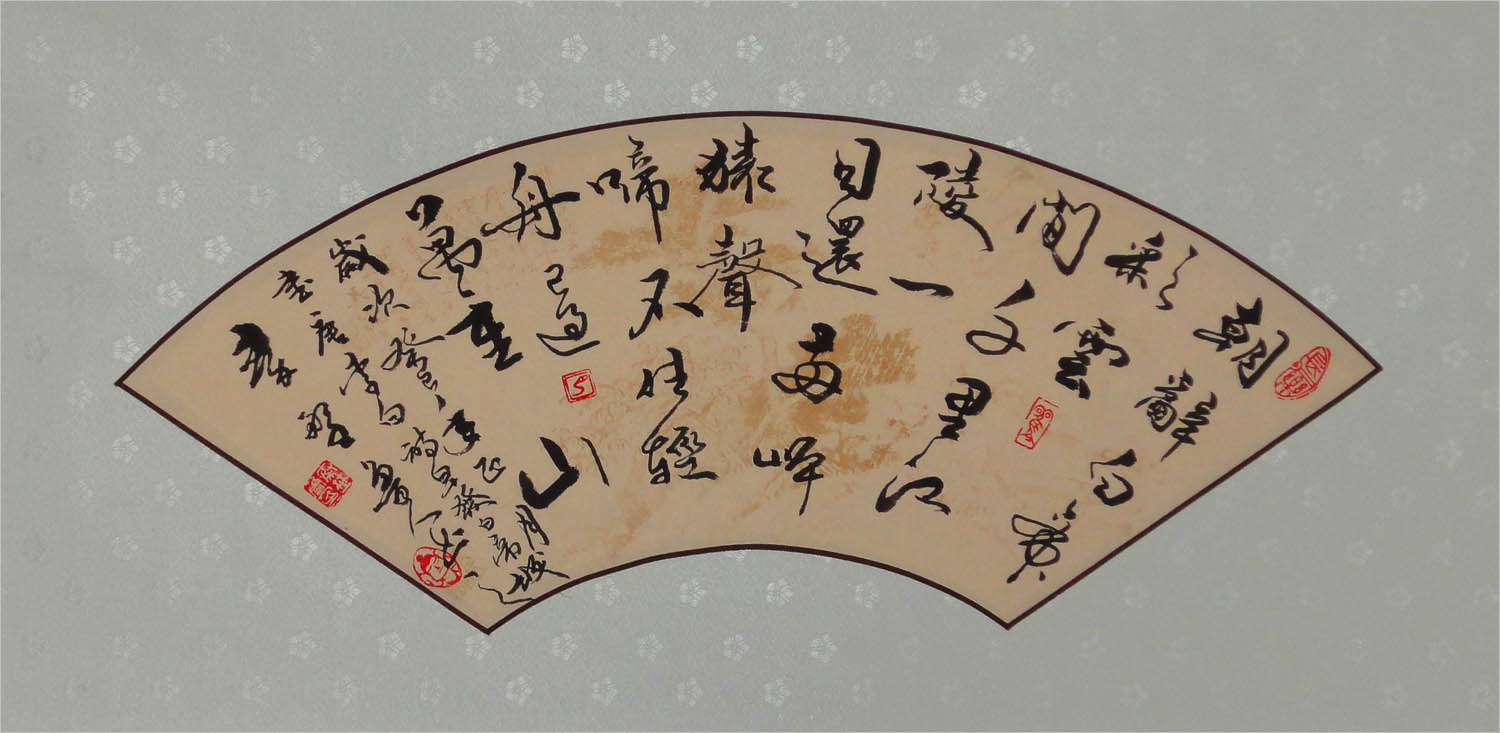 朝辭白帝
彩雲
間千里江
陵一
日還兩岸
猿聲
啼不住輕
舟已過
萬重山
歲次癸巳年正月
書唐李白詩早發白帝城